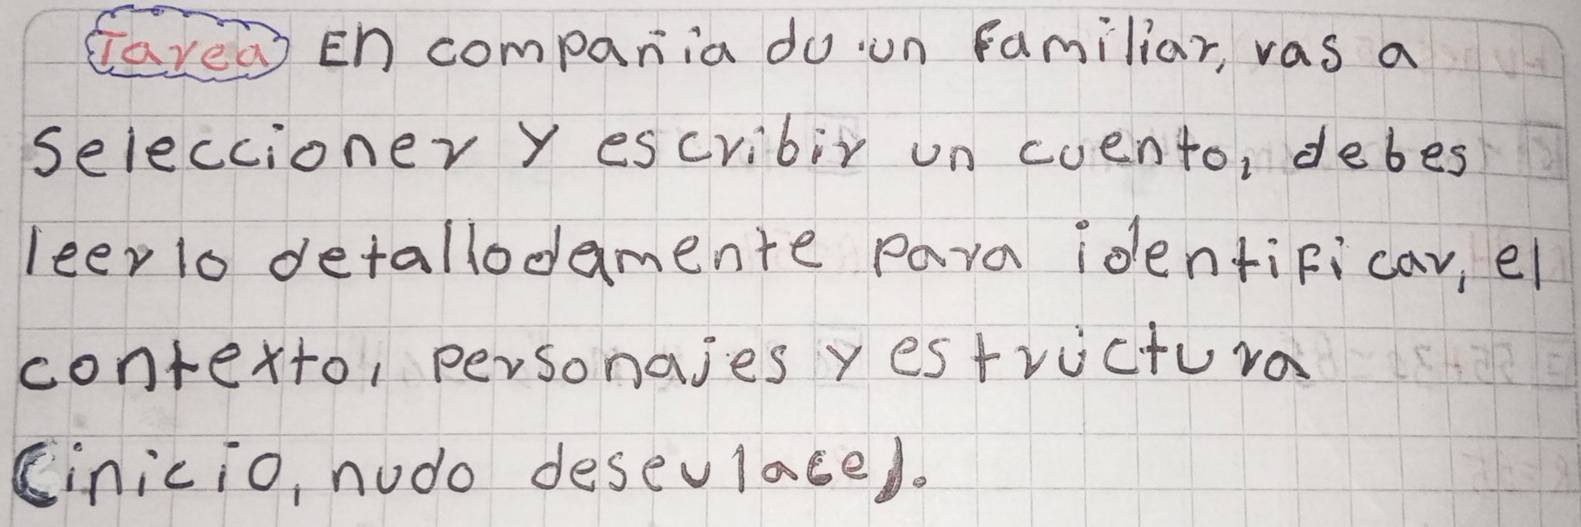 Tarea En compañia du un familiar, vas a
seleccioner y escribir un cuento, debes
leerlo detallodamente para identificar, el
contexto, personajes y estructura
(inicio, nudo deseulace).